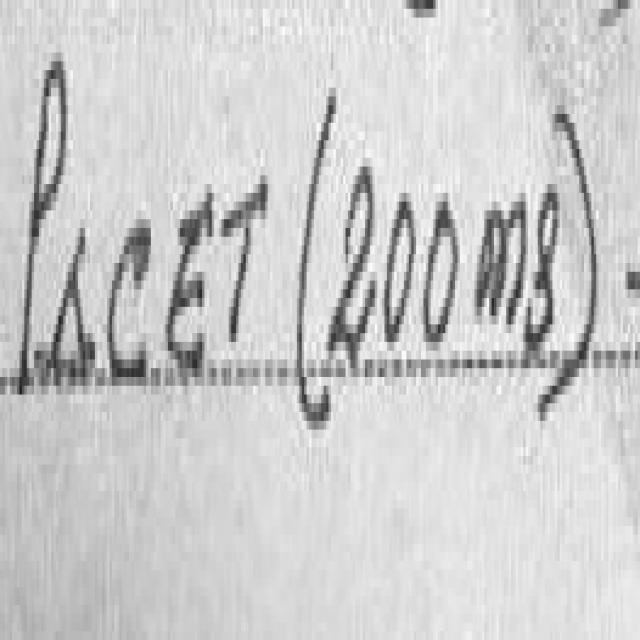 PacET (200mg)